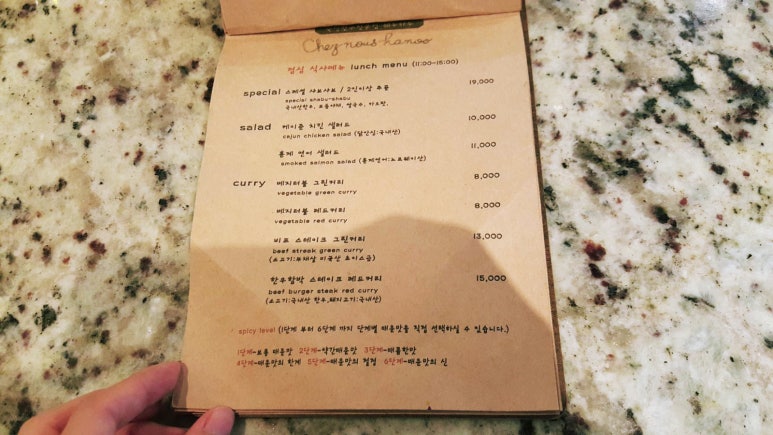 Chez nous hanoo
점심 식사메뉴 lunch menu (11:00-15:00)
special 스페셜 샤브샤브 / 2인이상 주문 19,000
special shabu-shabu
국내산한우, 모듬야채, 쌀국수, 죽
salad 케이준 치킨 샐러드 10,000
cajun chicken salad (닭안심:국내산)
훈제 연어 샐러드 11,000
smoked salmon salad (훈제연어:노르웨이산)
curry 베지터블 그린커리 8,000
vegetable green curry
베지터블 레드커리 8,000
vegetable red curry
비프 스테이크 그린커리 13,000
beef steak green curry
(소고기:부채살 미국산 초이스급)
한우함박 스테이크 레드커리 15,000
beef burger steak red curry
(소고기:국내산 한우,돼지고기:국내산)
* spicy level (1단계 부터 6단계 까지 단계별 매운맛을 직접 선택하실 수 있습니다.)
1단계-보통 매운맛 2단계-약간매운맛 3단계-매콤한맛
4단계-매운맛의 한계 5단계-매운맛의 절정 6단계-매운맛의 신